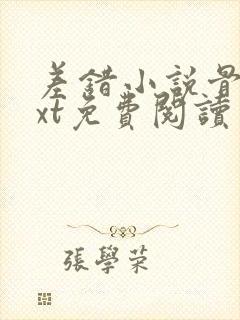 差錯小說骨
xt免費閱讀
張學荣